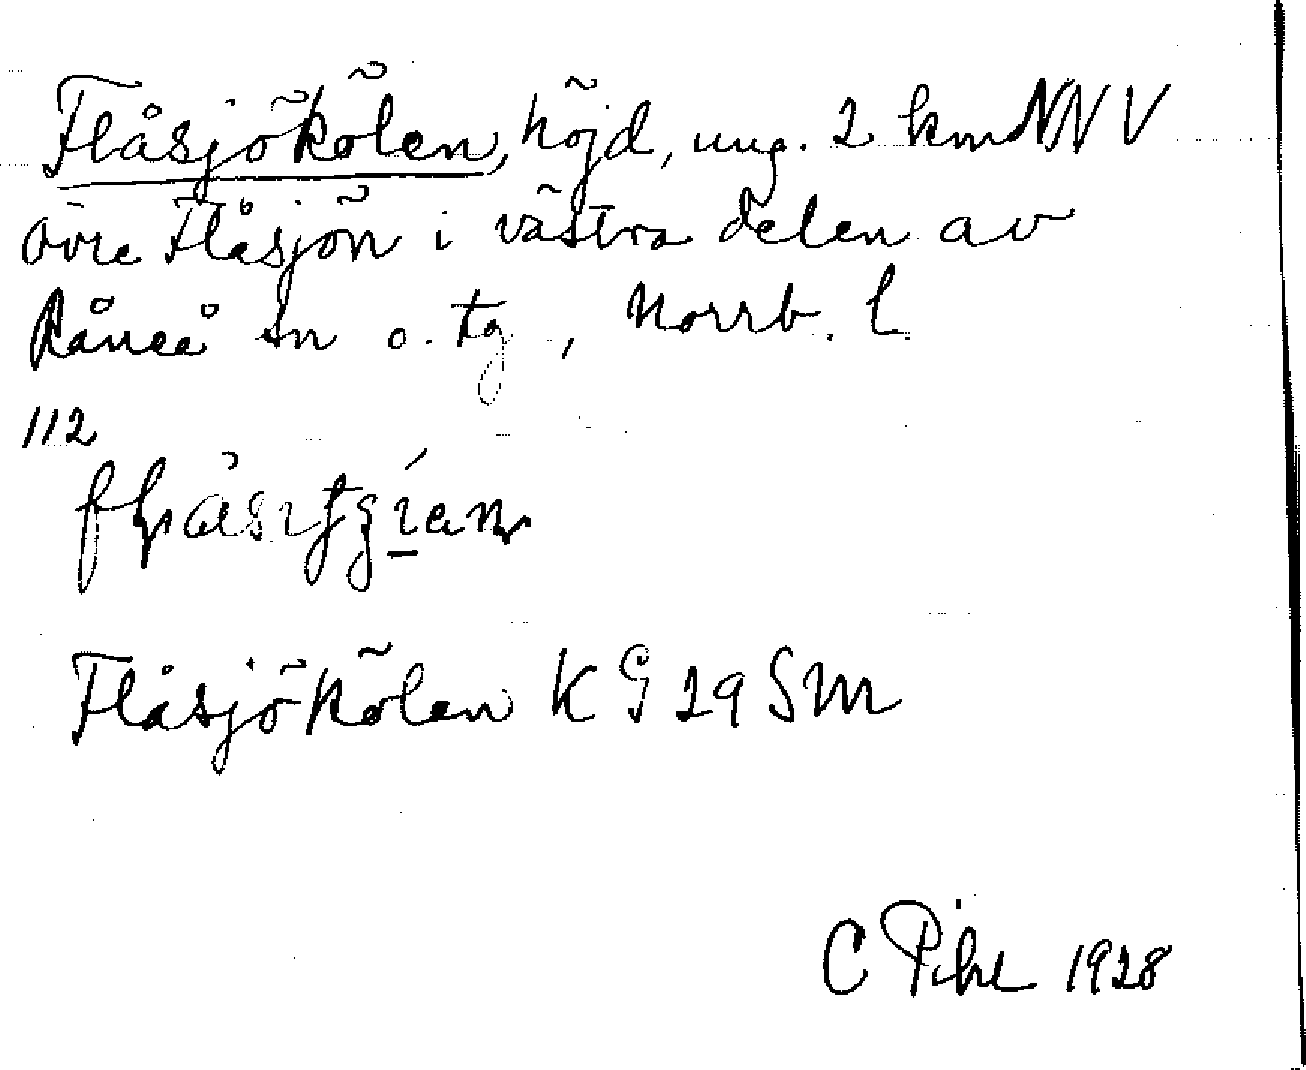 Flåsjökölen, höjd, ung. 2 km NNV
övre Flåsjön i västra delen av
Råneå sn o. tg, Norrb. l.
112
Flåsjökölen K G 29 SM
C Pihl 1928